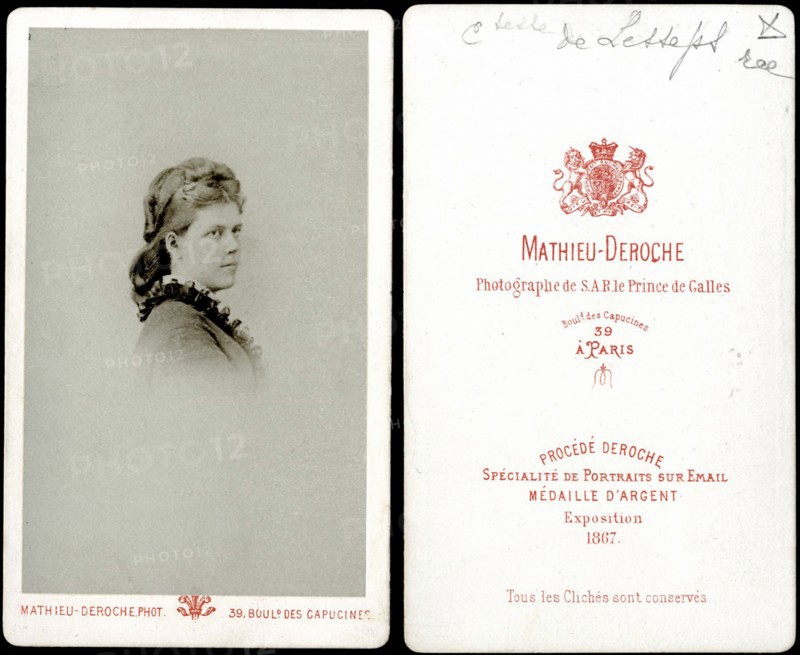 PHOTO12
PHOTO12
PHOTO12
PHOTO12
PHOTO12
PHOTO 12
PHOTO12
MATHIEU-DEROCHE, PHOT. 39, BOULD DES CAPUCINES
Ctesse de Lesseps
MATHIEU-DEROCHE
Photographe de S.A.R. le Prince de Galles
Ould des Capucines
39
À PARIS
PROCÉDÉ DEROCHE
SPÉCIALITÉ DE PORTRAITS SUR EMAIL
MÉDAILLE D'ARGENT
Exposition
1867.
Tous les Clichés sont conservés